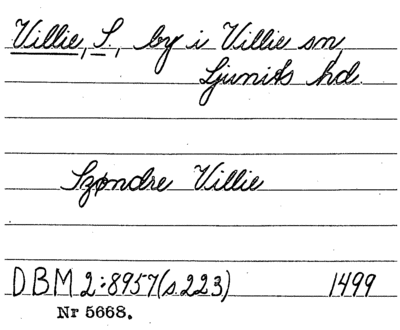 Villie, S., by i Villie sn,
Ljunits hd.
Szøndre Villie
DBM 2:8957(s.223) 1499
Nr 5668.